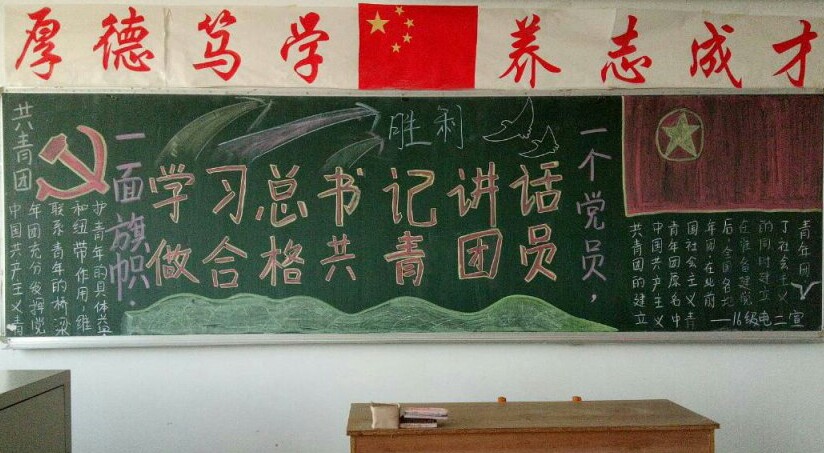 厚德笃学 养志成才
共青团
一面旗帜，
胜利
学习总书记讲话
做合格共青团员
一个党员，
中国共产主义青
年团充分发挥党
联系青年的桥梁
和纽带作用，维
护青年的具体益
共青团的建立
中国共产主义
青年团原名中
国社会主义青
年团，在此前
后，全国各地
在准备建党
的同时建立
了社会主义
青年团
——16级电二宣